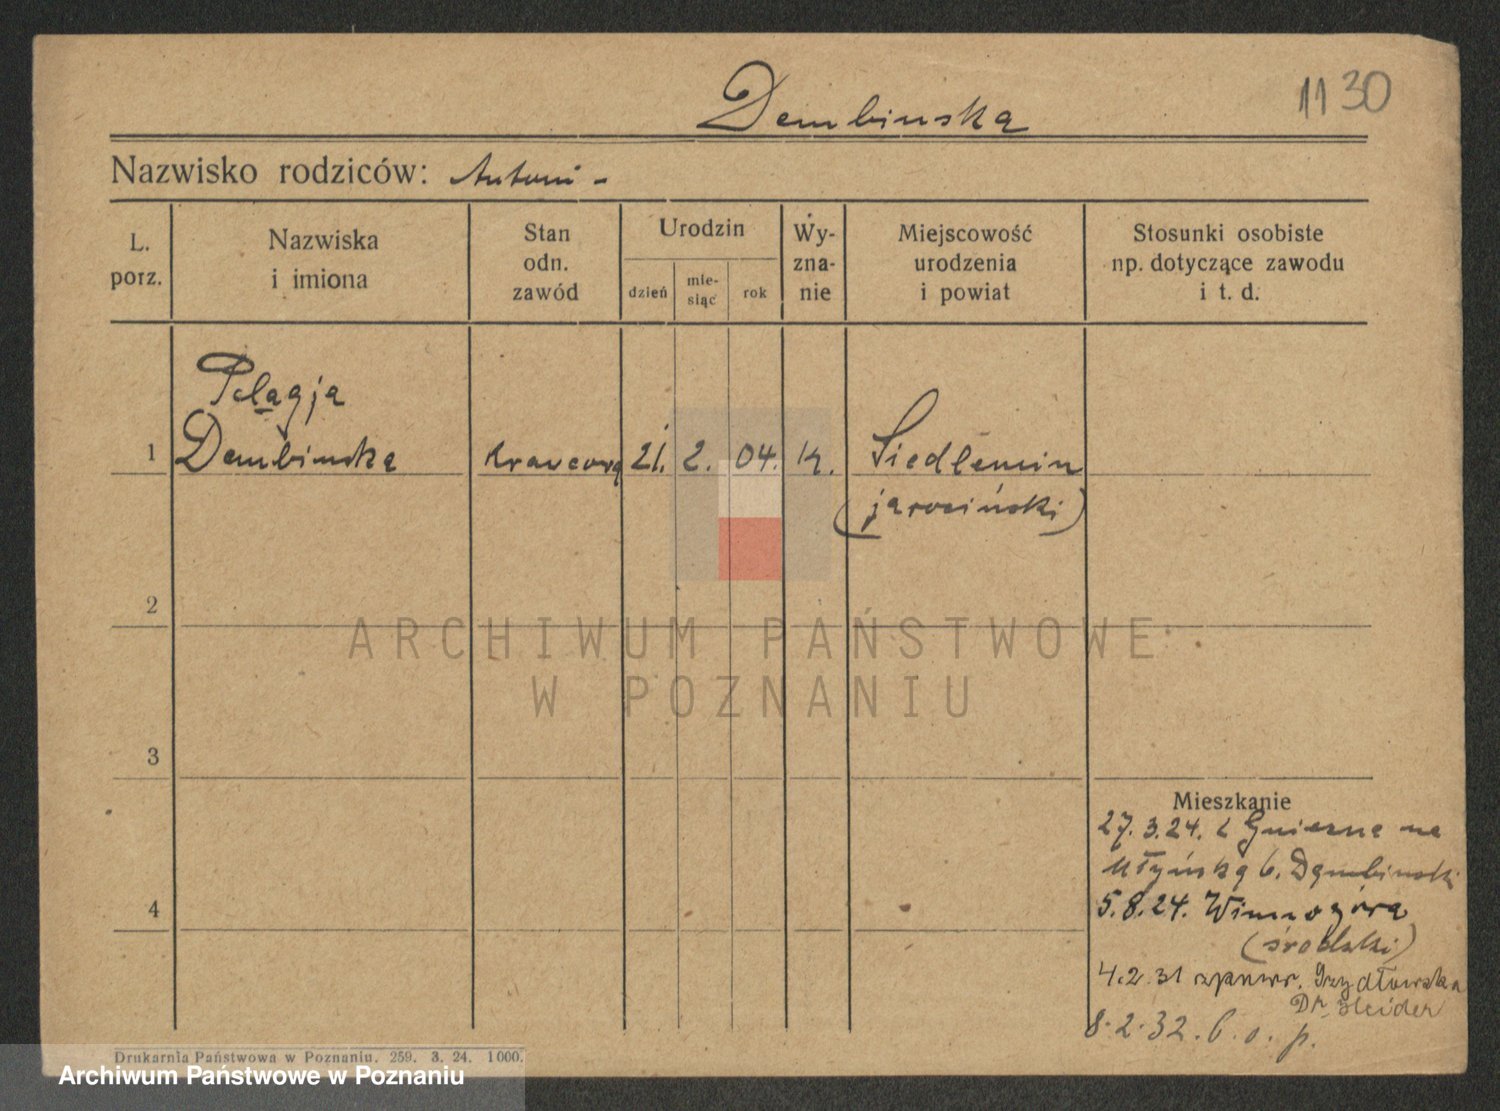 1130
Dembinska
Nazwisko rodziców: Antoni -
L. porz.
Nazwiska i imiona
Stan odn. zawód
Urodzin
dzień
mie-siąc
rok
Wy-zna-nie
Miejscowość urodzenia i powiat
Stosunki osobiste np. dotyczące zawodu i t. d.
Pelagja
1 Dembinska krawcowa 21. 2. 04. k. Siedlemin
(jarociński)
2
3
4
Mieszkanie
27.3.24. z Gniezna na
Młyńską 6. Dembinski
5.8.24. Winnogóra
(średzki)
4.2.31
8.2.32. b. o. p.
Drukarnia Państwowa w Poznaniu. 259. 3. 24. 1000.
ARCHIWUM PAŃSTWOWE
W POZNANIU
Archiwum Państwowe w Poznaniu